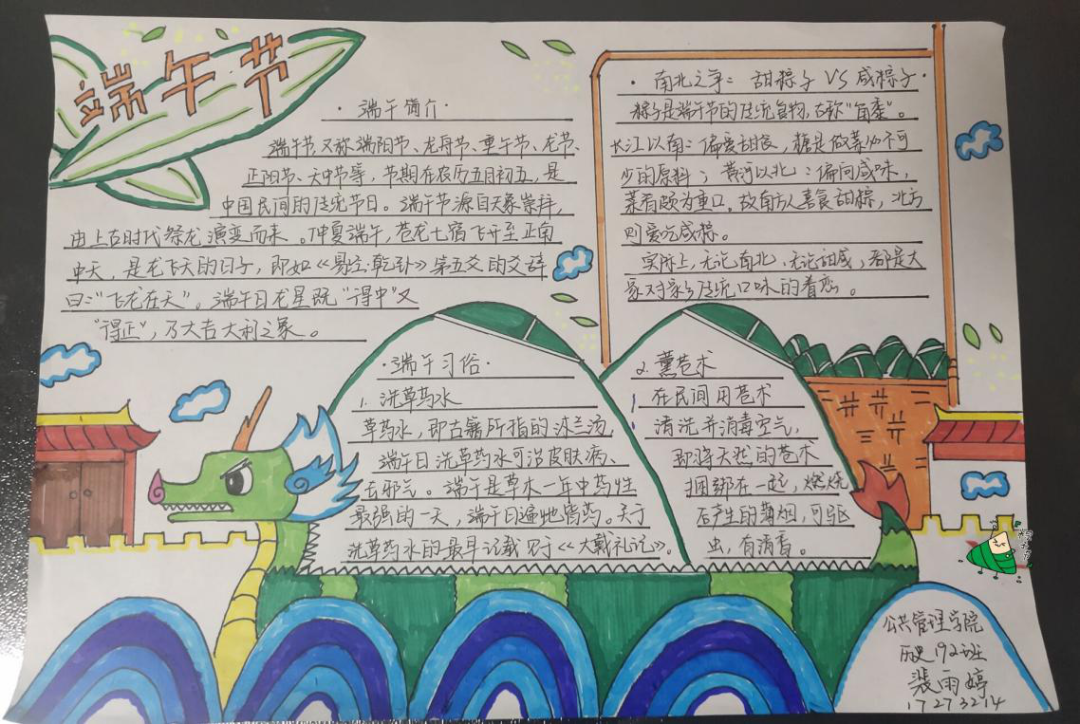 端午节
·端午简介·
端午节,又称端阳节、龙舟节、重午节、龙节、
正阳节、天中节等,节期在农历五月初五,是
中国民间的传统节日。端午节源自天象崇拜,
由上古时代祭龙演变而来。仲夏端午,苍龙七宿飞升至正南
中天,是龙飞天的日子,即如《易经·乾卦》第五爻的爻辞
曰:“飞龙在天”。端午日龙星既“得中”又
“得正”,乃大吉大利之象。
·南北之争:甜粽子 VS 咸粽子·
粽子是端午节的传统食物,古称“角黍”。
长江以南:偏爱甜食,糖是做菜必不可
少的原料;黄河以北:偏向咸味,
菜肴颇为重口。故南方人喜食甜粽,北方
则爱吃咸粽。
实际上,无论南北,无论甜咸,都是大
家对家乡传统口味的眷恋。
·端午习俗·
1. 洗草药水
草药水,即古籍所指的沐兰汤,
端午日洗草药水可治皮肤病、
去邪气。端午是草木一年中药性
最强的一天,端午日遍地皆药。关于
洗草药水的最早记载见于《大戴礼记》。
2. 薰苍术
在民间用苍术
清洗并消毒空气,
即将天然的苍术
捆绑在一起,燃烧
后产生的薄烟,可驱
虫,有清香。
公共管理学院
历史192班
裴雨婷
17273214